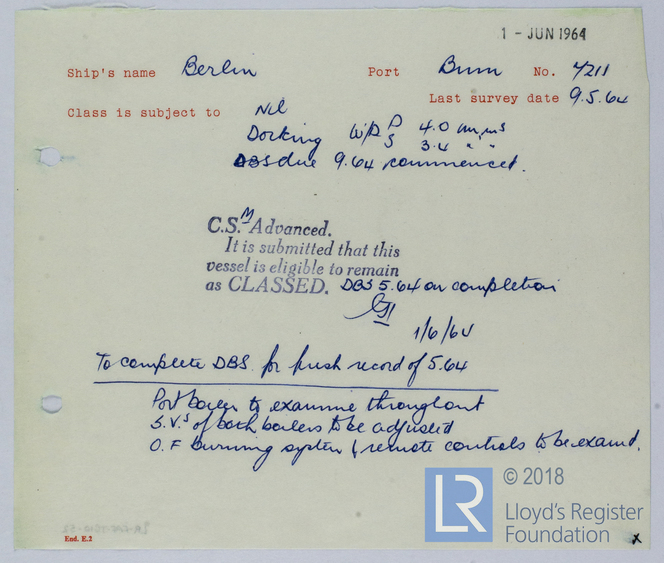 1 - JUN 1964
Ship's name Berlin Port Bmn No. 7211
Last survey date 9.5.64
Class is subject to Nil
Docking W/R P 4.0 m,ms
S 3.4 " "
DBS due 9.64 commenced.
C.S.M Advanced.
It is submitted that this
vessel is eligible to remain
as CLASSED. DBS 5.64 on completion
1/6/64
To complete DBS. for fresh record of 5.64
Port boiler to examine throughout
S.V.s of both boilers to be adjusted
O.F burning system & remote controls to be examd.
© 2018
LR Lloyd's Register
Foundation
End. E.2
x